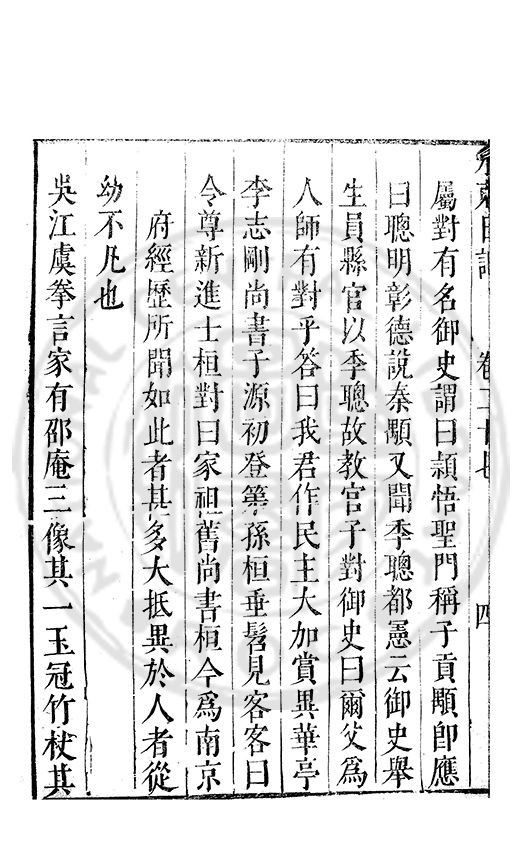 卷二十七
四
屬對有名御史謂曰穎悟聖門稱子貢顒即應
曰聰明彰德說秦顒又聞季聰都憲云御史舉
生員縣官以季聰故教官子對御史曰爾父為
人師有對乎答曰我君作民主大加賞異華亭
李志剛尚書子源初登第孫桓垂髫見客客曰
令尊新進士桓對曰家祖舊尚書桓今為南京
府經歷所聞如此者甚多大抵異於人者從
幼不凡也
吳江虞拳言家有邵庵三像其一玉冠竹杖其